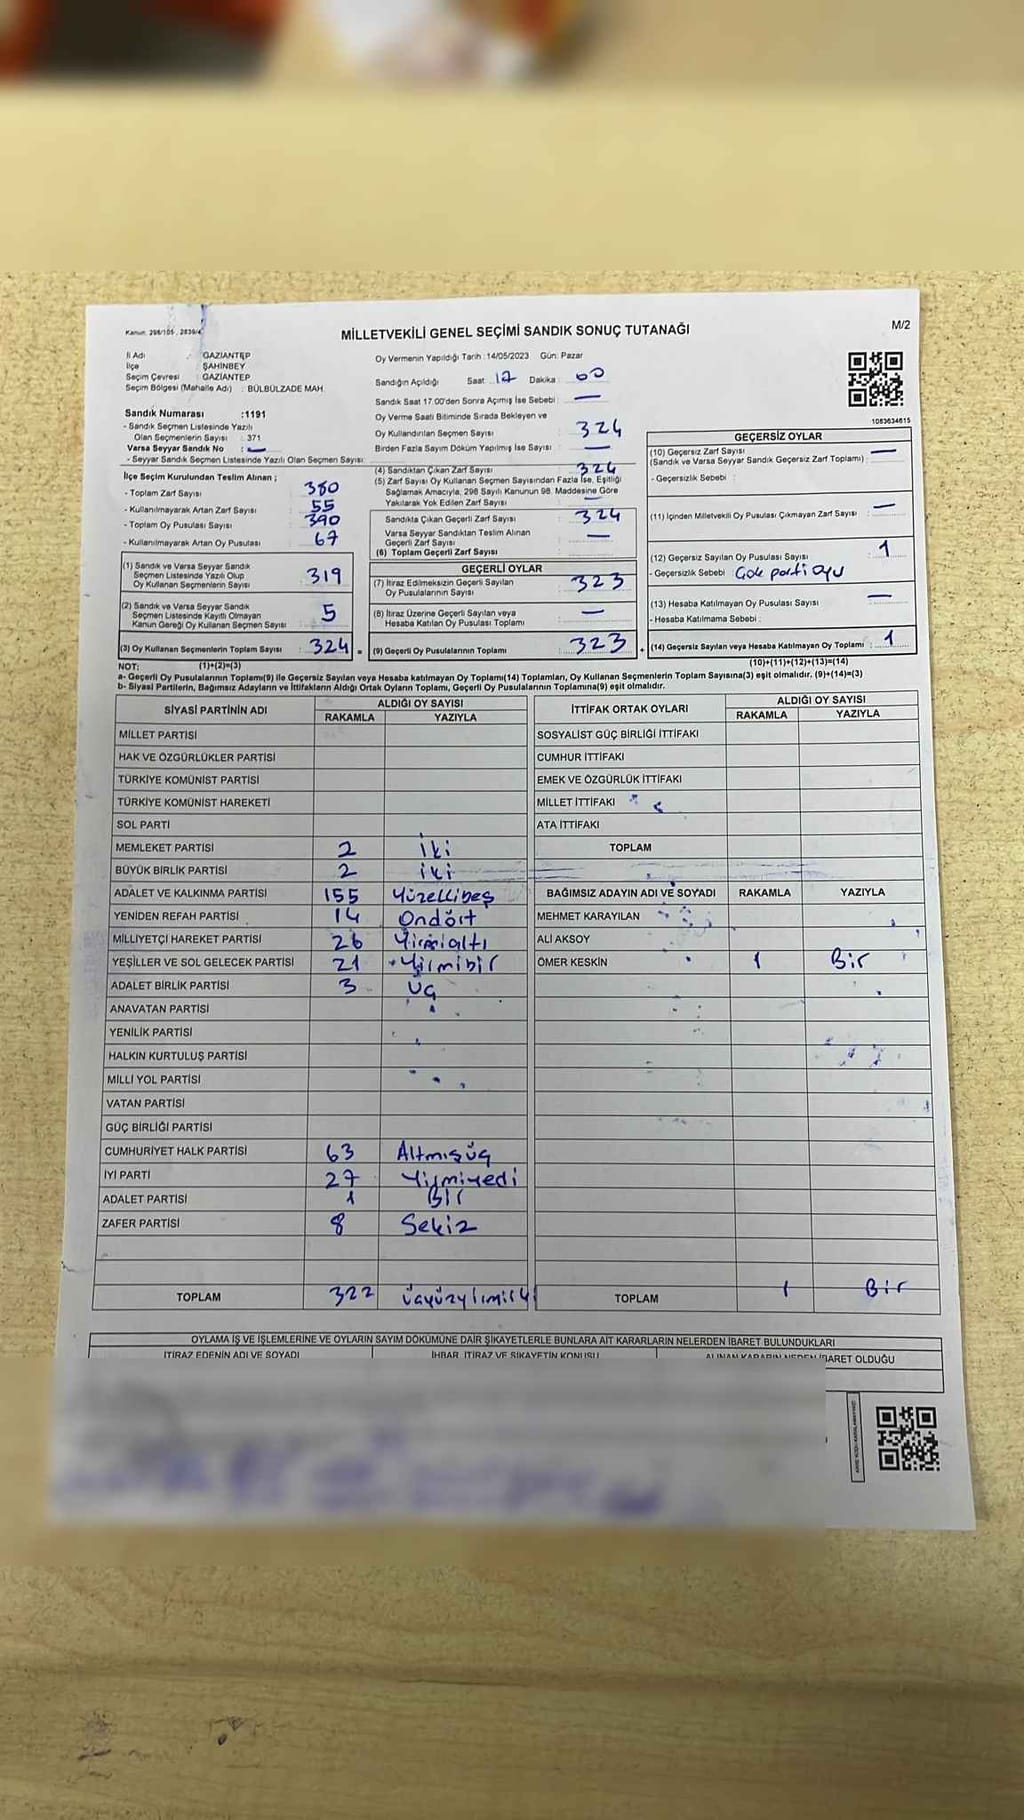 Kanun: 298/105 , 2839/4
MİLLETVEKİLİ GENEL SEÇİMİ SANDIK SONUÇ TUTANAĞI
M/2
İl Adı : GAZİANTEP
İlçe : ŞAHİNBEY
Seçim Çevresi : GAZİANTEP
Seçim Bölgesi (Mahalle Adı) : BÜLBÜLZADE MAH.
Sandık Numarası :1191
- Sandık Seçmen Listesinde Yazılı
Olan Seçmenlerin Sayısı : 371
Varsa Seyyar Sandık No : —
- Seyyar Sandık Seçmen Listesinde Yazılı Olan Seçmen Sayısı:
Oy Vermenin Yapıldığı Tarih :14/05/2023 Gün: Pazar
Sandığın Açıldığı Saat : 17 Dakika : 00
Sandık Saat 17.00'den Sonra Açılmış İse Sebebi : —
Oy Verme Saati Bitiminde Sırada Bekleyen ve
Oy Kullandırılan Seçmen Sayısı : 324
Birden Fazla Sayım Döküm Yapılmış İse Sayısı : —
1083634615
İlçe Seçim Kurulundan Teslim Alınan ;
- Toplam Zarf Sayısı : 380
- Kullanılmayarak Artan Zarf Sayısı : 55
- Toplam Oy Pusulası Sayısı : 390
- Kullanılmayarak Artan Oy Pusulası : 67
(1) Sandık ve Varsa Seyyar Sandık
Seçmen Listesinde Yazılı Olup
Oy Kullanan Seçmenlerin Sayısı : 319
(2) Sandık ve Varsa Seyyar Sandık
Seçmen Listesinde Kayıtlı Olmayan
Kanun Gereği Oy Kullanan Seçmen Sayısı : 5
(3) Oy Kullanan Seçmenlerin Toplam Sayısı : 324 =
(4) Sandıktan Çıkan Zarf Sayısı : 324
(5) Zarf Sayısı Oy Kullanan Seçmen Sayısından Fazla İse, Eşitliği
Sağlamak Amacıyla, 298 Sayılı Kanunun 98. Maddesine Göre
Yakılarak Yok Edilen Zarf Sayısı : —
Sandıkta Çıkan Geçerli Zarf Sayısı : 324
Varsa Seyyar Sandıktan Teslim Alınan
Geçerli Zarf Sayısı : —
(6) Toplam Geçerli Zarf Sayısı
GEÇERLİ OYLAR
(7) İtiraz Edilmeksizin Geçerli Sayılan
Oy Pusulalarının Sayısı : 323
(8) İtiraz Üzerine Geçerli Sayılan veya
Hesaba Katılan Oy Pusulası Toplamı : —
(9) Geçerli Oy Pusulalarının Toplamı : 323 +
GEÇERSİZ OYLAR
(10) Geçersiz Zarf Sayısı : —
(Sandık ve Varsa Seyyar Sandık Geçersiz Zarf Toplamı)
- Geçersizlik Sebebi :
(11) İçinden Milletvekili Oy Pusulası Çıkmayan Zarf Sayısı : —
(12) Geçersiz Sayılan Oy Pusulası Sayısı : 1
- Geçersizlik Sebebi : Çok parti oyu
(13) Hesaba Katılmayan Oy Pusulası Sayısı : —
- Hesaba Katılmama Sebebi :
(14) Geçersiz Sayılan veya Hesaba Katılmayan Oy Toplamı : 1
NOT: (1)+(2)=(3) (10)+(11)+(12)+(13)=(14)
a- Geçerli Oy Pusulalarının Toplamı(9) ile Geçersiz Sayılan veya Hesaba katılmayan Oy Toplamı(14) Toplamları, Oy Kullanan Seçmenlerin Toplam Sayısına(3) eşit olmalıdır. (9)+(14)=(3)
b- Siyasi Partilerin, Bağımsız Adayların ve İttifakların Aldığı Ortak Oyların Toplamı, Geçerli Oy Pusulalarının Toplamına(9) eşit olmalıdır.
SİYASİ PARTİNİN ADI ALDIĞI OY SAYISI
RAKAMLA YAZIYLA
MİLLET PARTİSİ
HAK VE ÖZGÜRLÜKLER PARTİSİ
TÜRKİYE KOMÜNİST PARTİSİ
TÜRKİYE KOMÜNİST HAREKETİ
SOL PARTİ
MEMLEKET PARTİSİ 2 İki
BÜYÜK BİRLİK PARTİSİ 2 iki
ADALET VE KALKINMA PARTİSİ 155 Yüzellibeş
YENİDEN REFAH PARTİSİ 14 Ondört
MİLLİYETÇİ HAREKET PARTİSİ 26 Yirmialtı
YEŞİLLER VE SOL GELECEK PARTİSİ 21 Yirmibir
ADALET BİRLİK PARTİSİ 3 Üç
ANAVATAN PARTİSİ
YENİLİK PARTİSİ
HALKIN KURTULUŞ PARTİSİ
MİLLİ YOL PARTİSİ
VATAN PARTİSİ
GÜÇ BİRLİĞİ PARTİSİ
CUMHURİYET HALK PARTİSİ 63 Altmışüç
İYİ PARTİ 27 Yirmiyedi
ADALET PARTİSİ 1 Bir
ZAFER PARTİSİ 8 Sekiz
TOPLAM 322
İTTİFAK ORTAK OYLARI ALDIĞI OY SAYISI
RAKAMLA YAZIYLA
SOSYALİST GÜÇ BİRLİĞİ İTTİFAKI
CUMHUR İTTİFAKI
EMEK VE ÖZGÜRLÜK İTTİFAKI
MİLLET İTTİFAKI
ATA İTTİFAKI
TOPLAM
BAĞIMSIZ ADAYIN ADI VE SOYADI RAKAMLA YAZIYLA
MEHMET KARAYILAN
ALİ AKSOY
ÖMER KESKİN 1 Bir
TOPLAM 1 Bir
OYLAMA İŞ VE İŞLEMLERİNE VE OYLARIN SAYIM DÖKÜMÜNE DAİR ŞİKAYETLERLE BUNLARA AİT KARARLARIN NELERDEN İBARET BULUNDUKLARI
İTİRAZ EDENİN ADI VE SOYADI İHBAR, İTİRAZ VE ŞİKAYETİN KONUSU ALINAN KARARIN NEDEN İBARET OLDUĞU